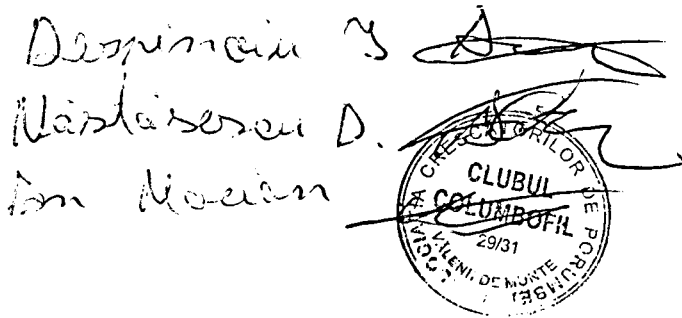 Despinoiu I
Năstăsescu D.
Ion Mocian
ASOCIAȚIA CRESCĂTORILOR DE PORUMBEI
CLUBUL
COLUMBOFIL
29/31
VĂLENII DE MUNTE